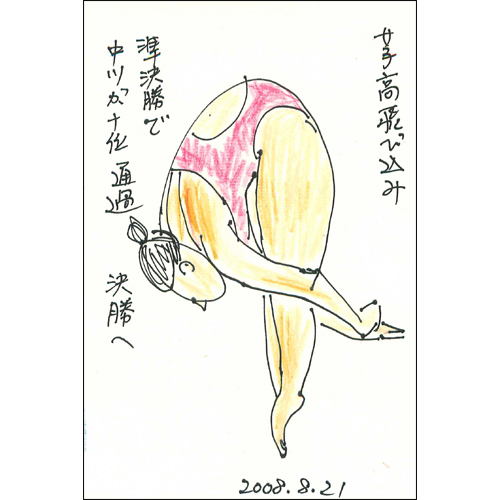 女子高飛び込み
準決勝で
中川が十位通過
決勝へ
2008.8.21